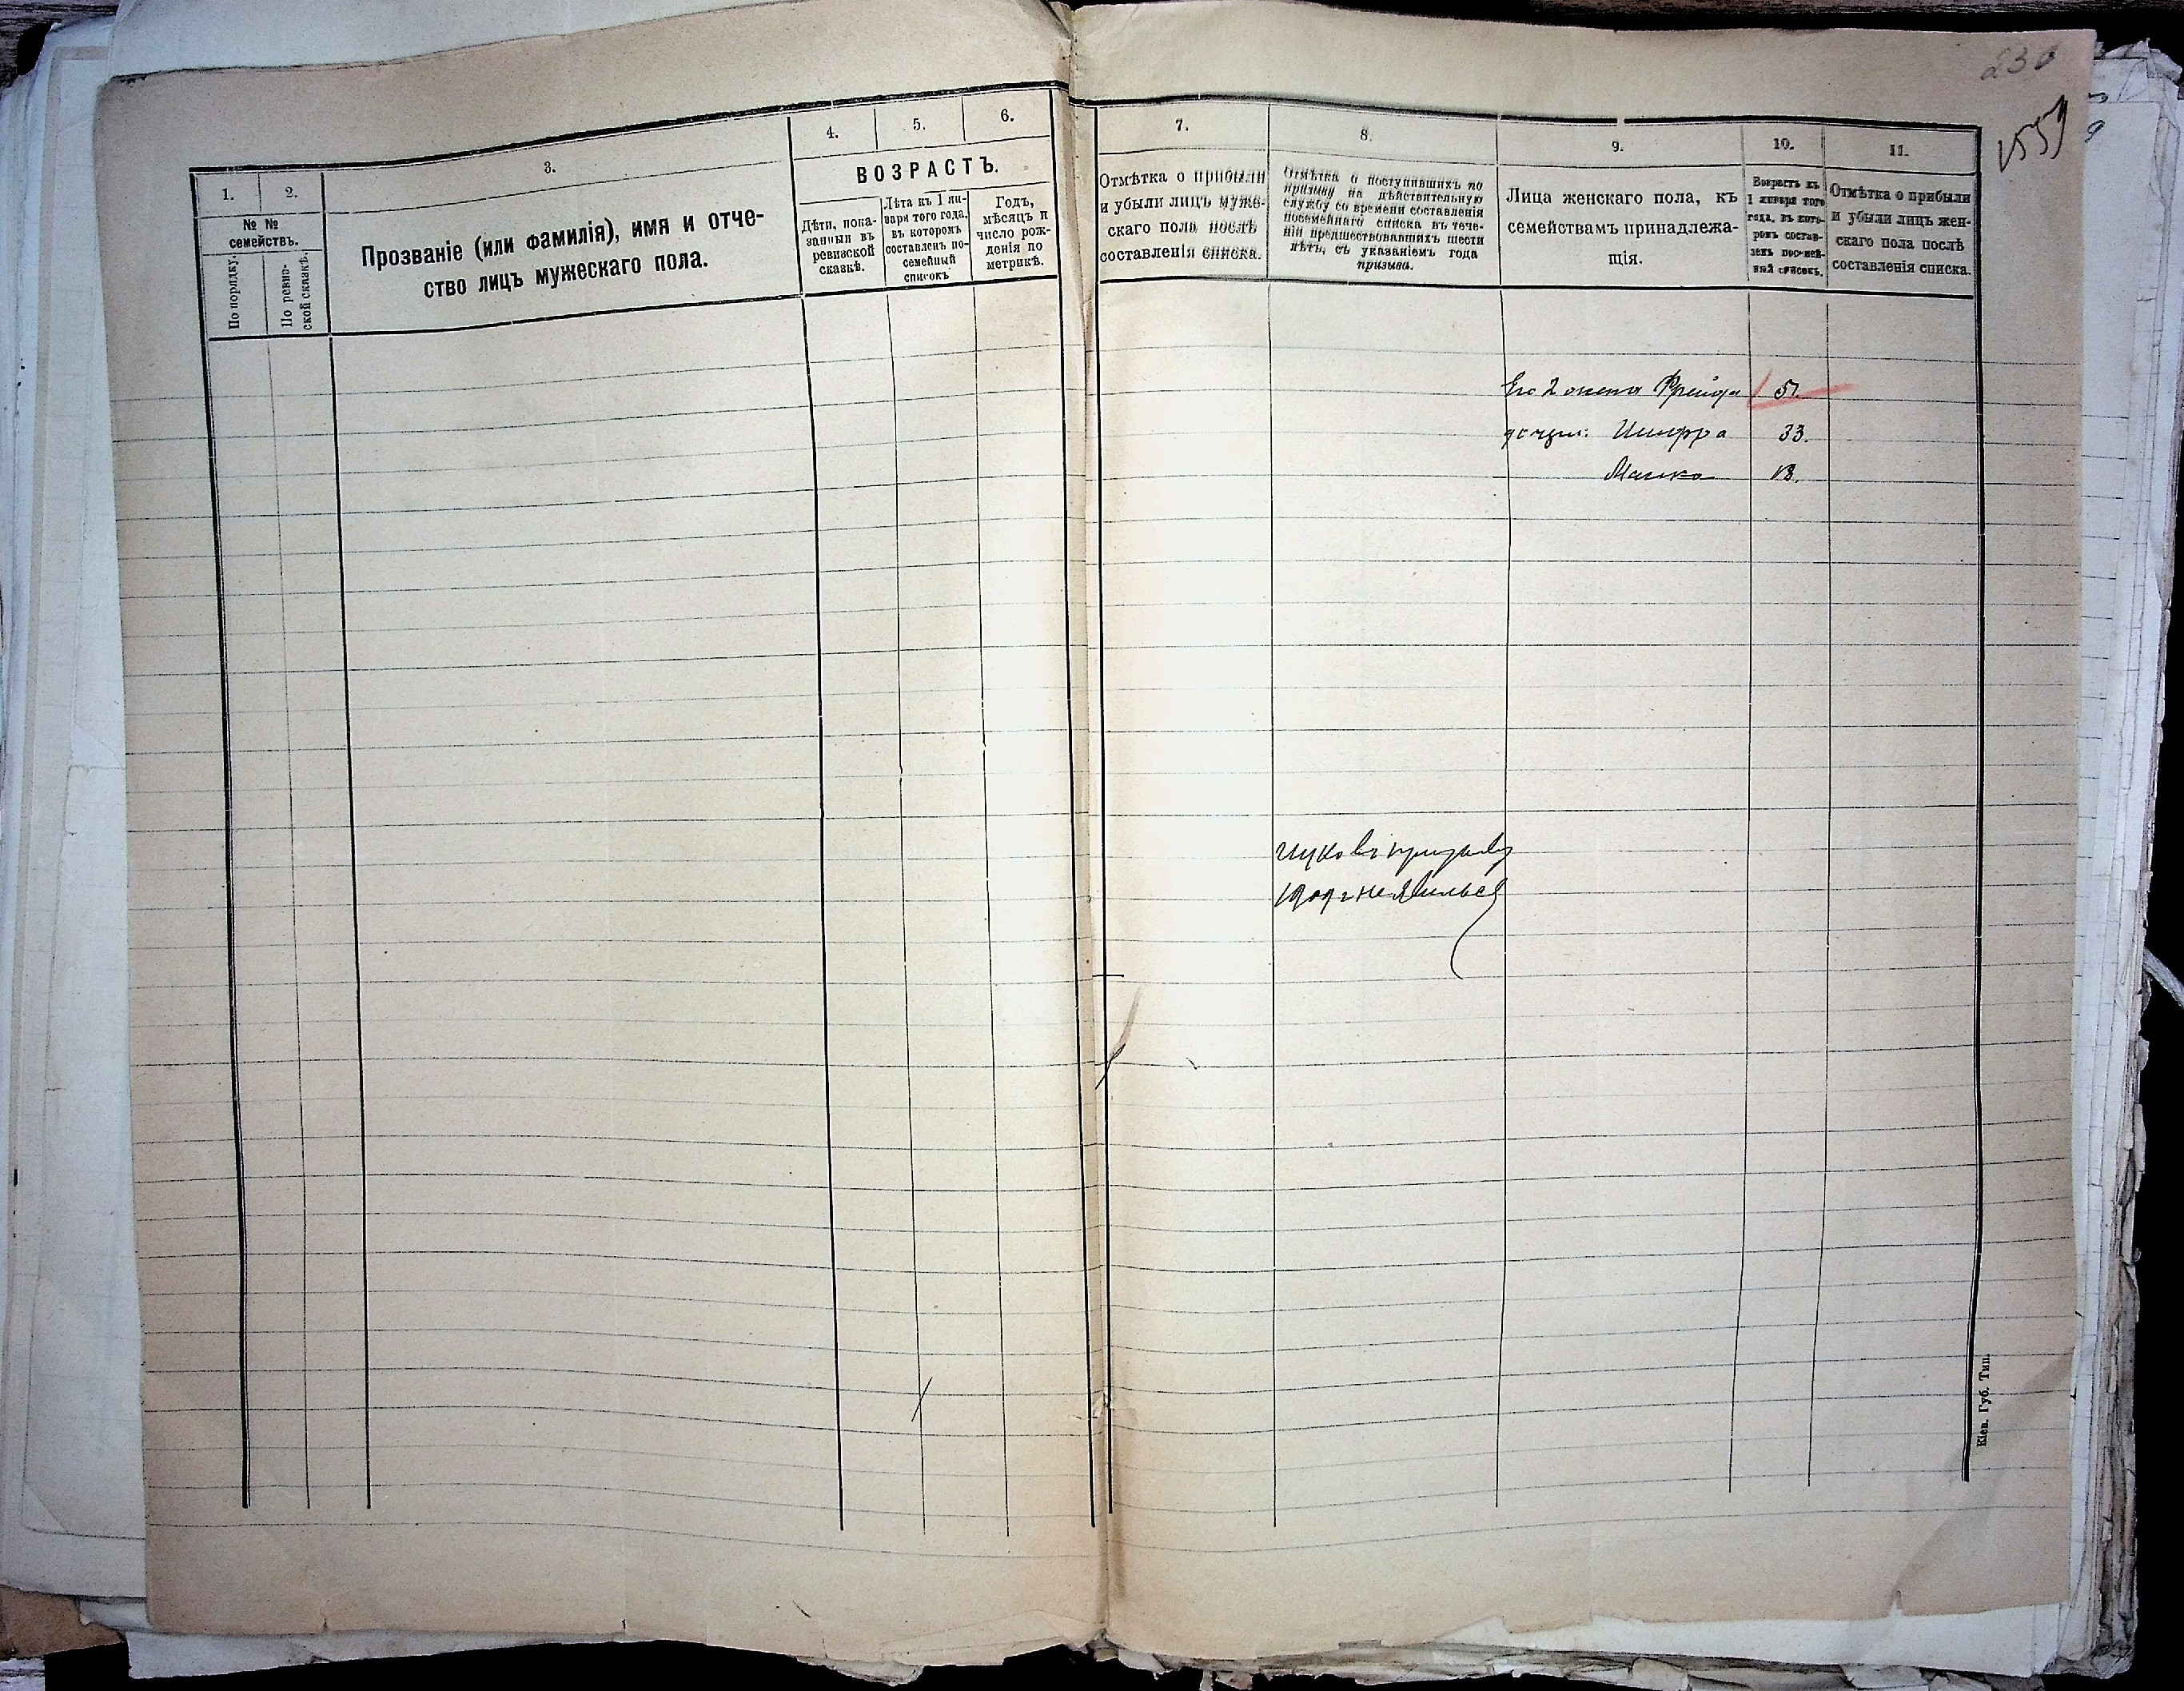 230
1559
1.
2.
3.
4.
5.
6.
№ №
семействъ.
По порядку.
По ревиз-
ской сказкѣ.
Прозваніе (или фамилія), имя и отче-
ство лицъ мужескаго пола.
ВОЗРАСТЪ.
Дѣти, пока-
занныя въ
ревизской
сказкѣ.
Лѣта къ 1 ян-
варя того года,
въ которомъ
составленъ по-
семейный
списокъ
Годъ,
мѣсяцъ и
число рож-
денія по
метрикѣ.
7.
8.
9.
10.
11.
Отмѣтка о прибыли
и убыли лицъ муже-
скаго пола послѣ
составленія списка.
Отмѣтка о поступившихъ по
призыву на дѣйствительную
службу со времени составленія
посемейнаго списка въ тече-
ніи предшествовавшихъ шести
лѣтъ, съ указаніемъ года
призыва.
Лица женскаго пола, къ
семействамъ принадлежа-
щія.
Возрастъ къ
1 января того
года, въ кото-
ромъ состав-
ленъ посемей-
ный списокъ.
Отмѣтка о прибыли
и убыли лицъ жен-
скаго пола послѣ
составленія списка.
Его 2 жена Фрейда 51.
дочери: Шифра 33.
Малка 13.
къ призыву
1909 г не явился
Кіев. Губ. Тип.